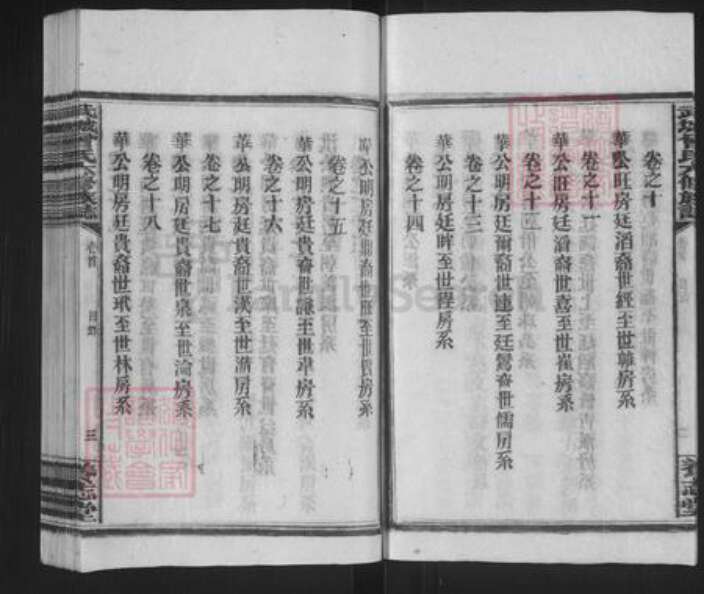 卷之十
華公旺房廷滔裔世經至世 房系
卷之十一
華公旺房廷滔裔世喜至世崔房系
卷之十二
華公明房廷爾裔世連至廷鴛裔世儒房系
卷之十三
華公明房廷 至世 房系
卷之十四
華公明房廷 裔世 至世 房系
卷之十五
華公明房廷貴裔世 至世 房系
卷之十六
華公明房廷貴裔世漢至世 房系
卷之十七
華公明房廷貴裔世泉至世淪房系
卷之十八
華公明房廷貴裔世玳至世林房系
武城曾氏六修族譜
卷首
目錄
三
養志堂